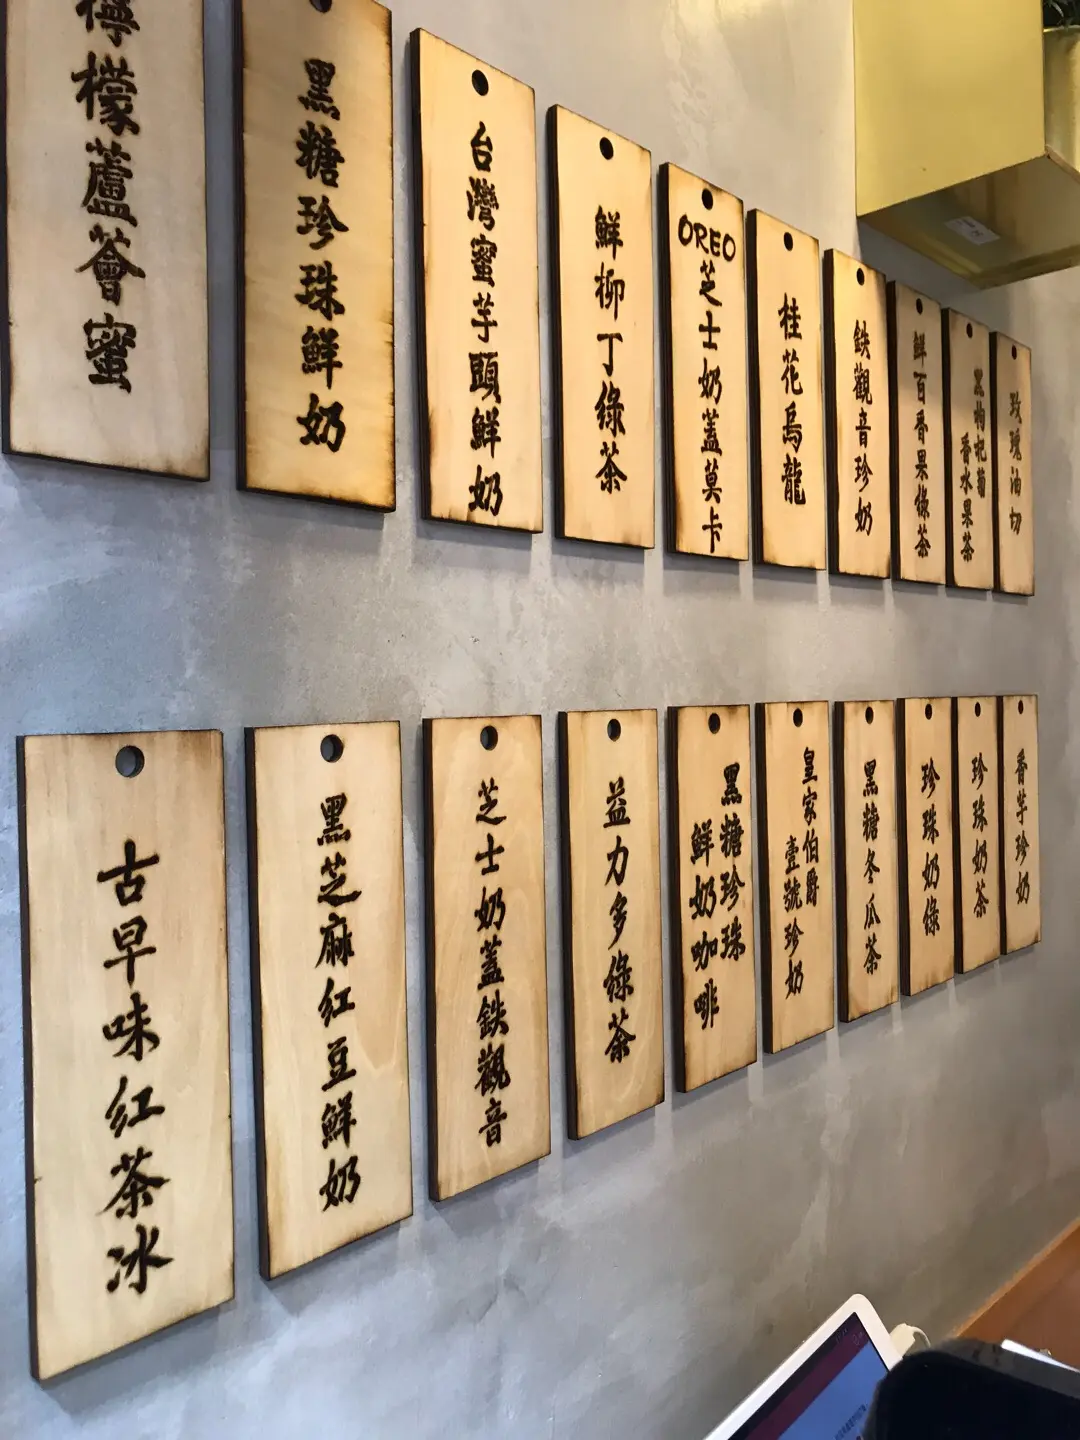 檸檬蘆薈蜜
黑糖珍珠鮮奶
台灣蜜芋頭鮮奶
鮮柳丁綠茶
OREO芝士奶蓋莫卡
桂花烏龍
鉄觀音珍奶
鮮百香果綠茶
黑枸杞菊
香水果茶
玫瑰油切
古早味红茶冰
黑芝麻红豆鮮奶
芝士奶蓋鉄觀音
益力多綠茶
黑糖珍珠
鮮奶咖啡
皇家伯爵
壹號珍奶
黑糖冬瓜茶
珍珠奶綠
珍珠奶茶
香芋珍奶